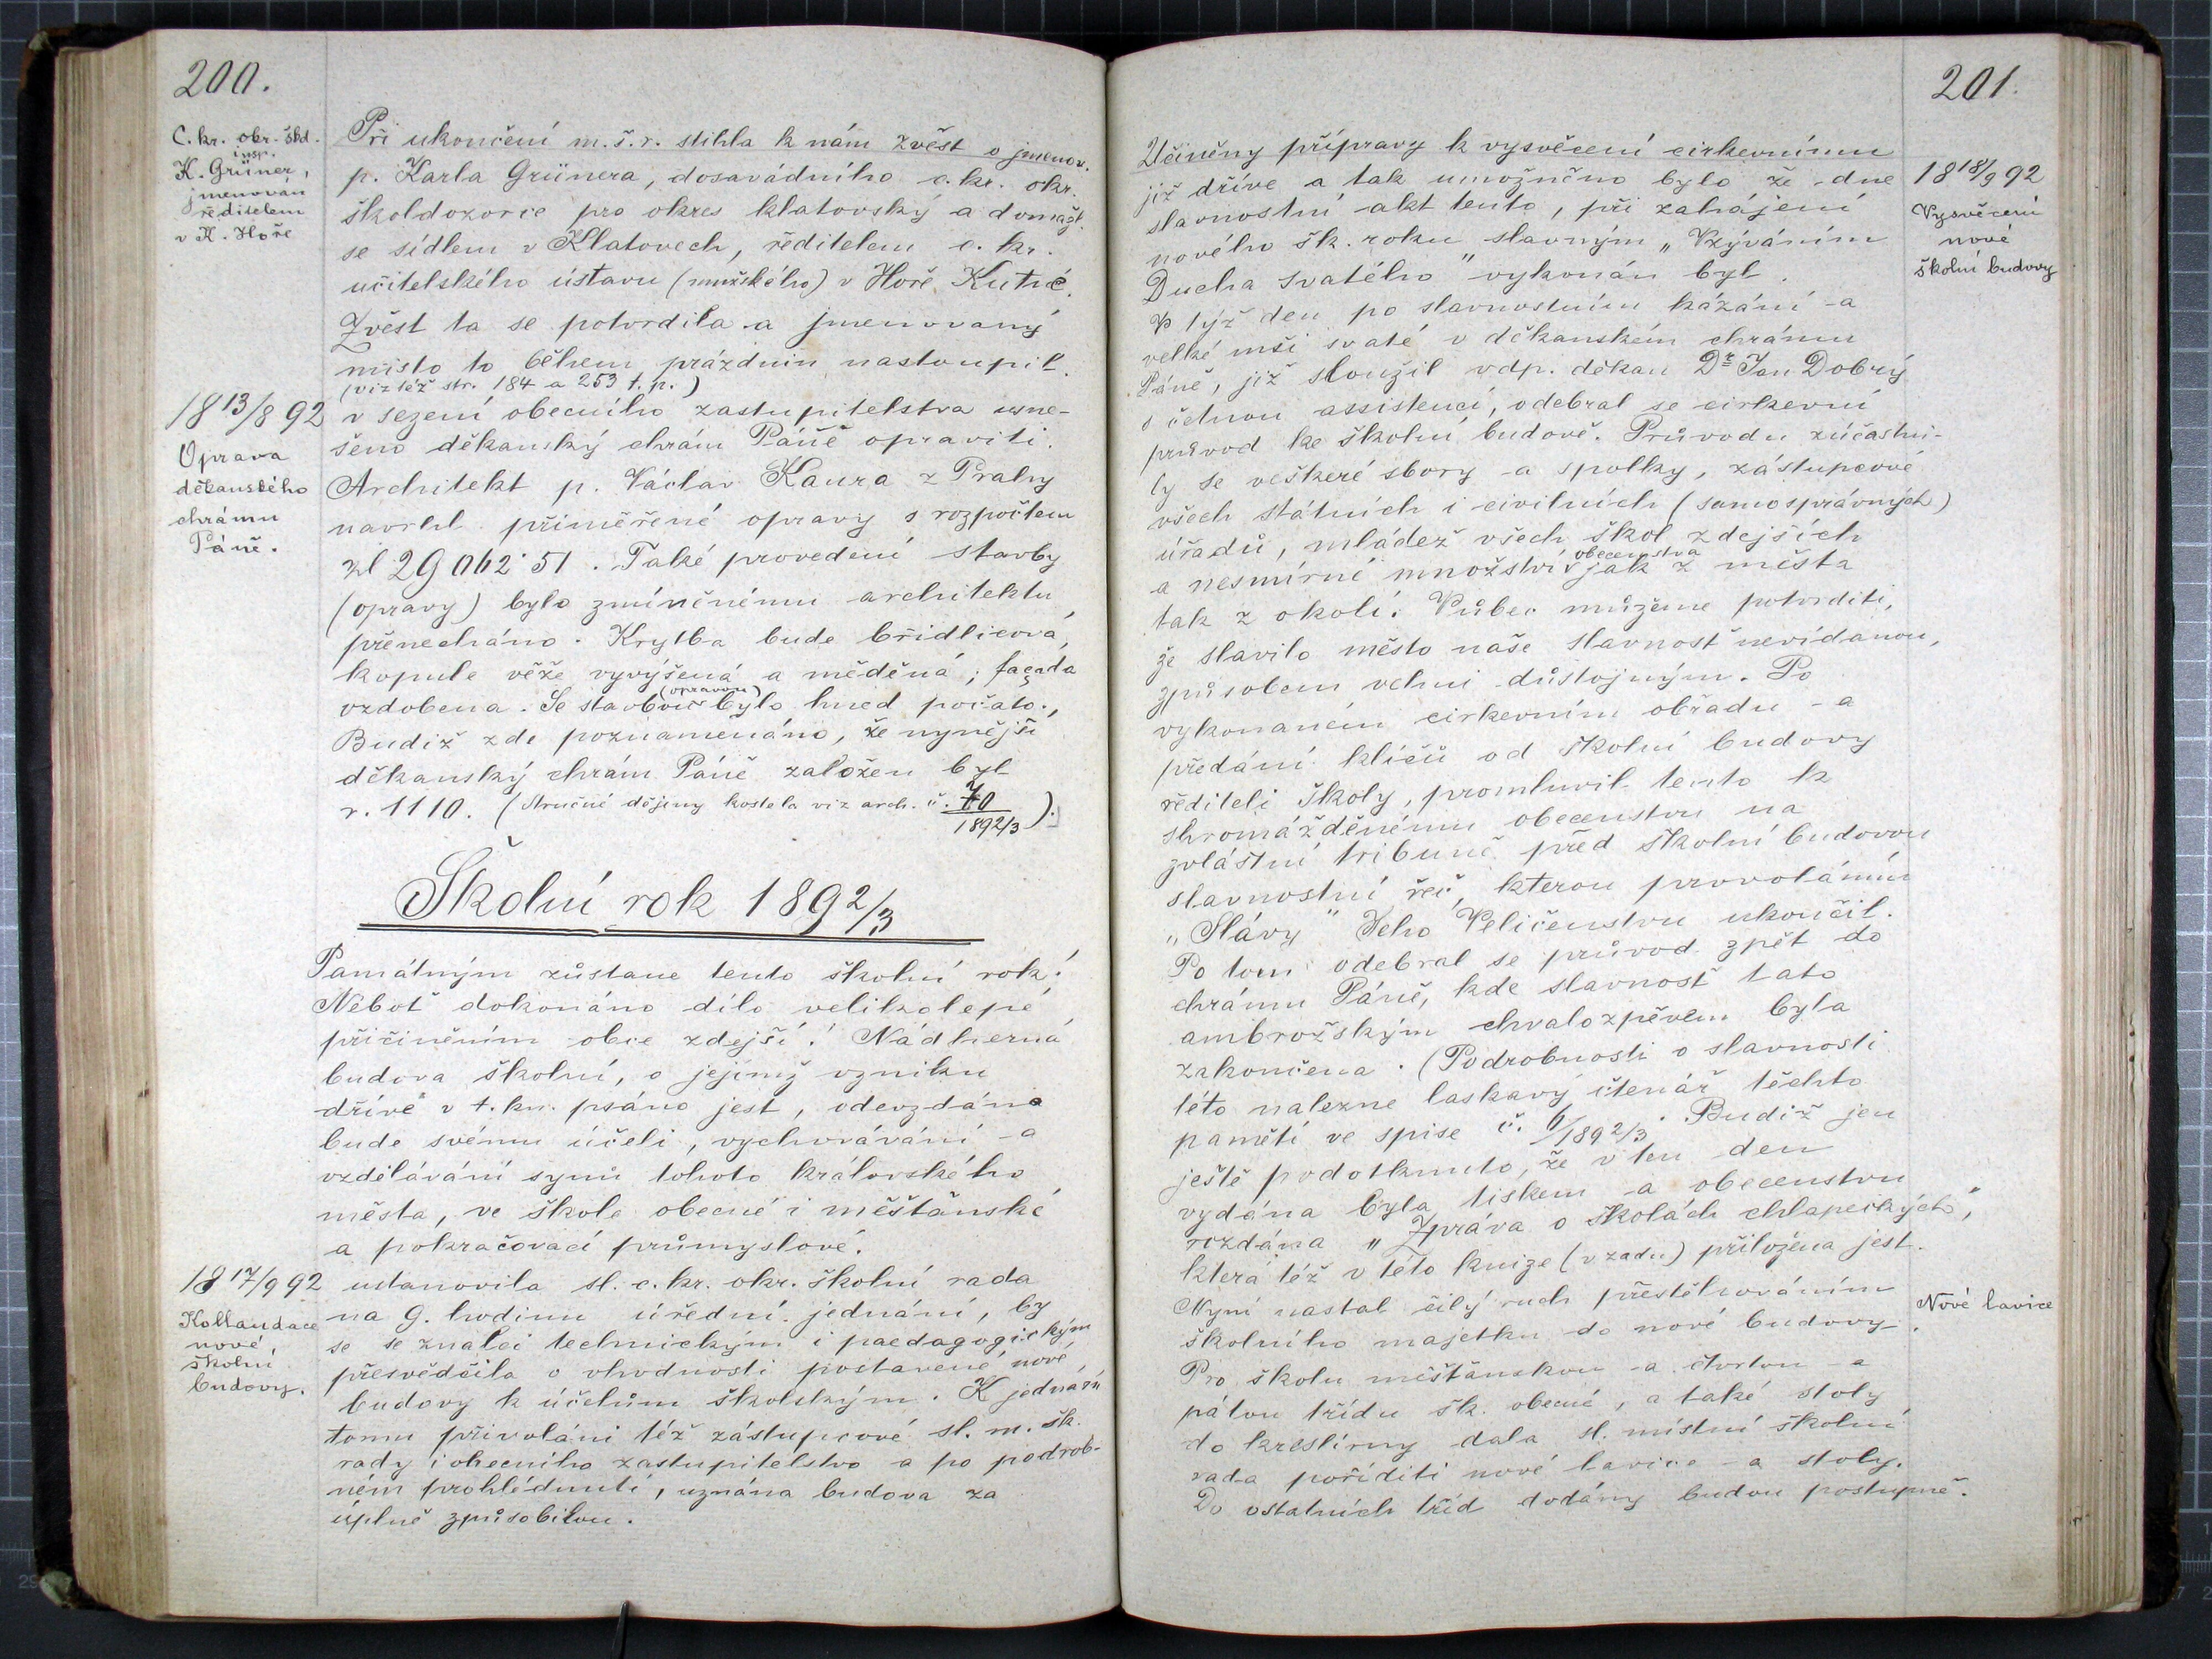 200.
C. kr. okr. škd.
insp.
K. Grüner,
jmenován
ředitelem
v K. Hoře
Při ukončení m. š. r. stihla k nám zvěst o jmenov.
p. Karla Grünera, dosavádního c. kr. okr.
školdozorce pro okres klatovský a domažl.
se sídlem v Klatovech, ředitelem c. kr.
učitelského ústavu (mužského) v Hoře Kutné.
Zvěst ta se potvrdila a jmenovaný
místo to během prázdnin nastoupil.
(viz též str. 184 a 253 t. p.)
18 13/8 92
Oprava
děkanského
chrámu
Páně.
v sezení obecního zastupitelstva usne-
šeno děkanský chrám Páně opraviti.
Architekt p. Václav Kaura z Prahy
navrhl přiměřené opravy s rozpočtem
zl 29 062·51. Také provedení stavby
(opravy) bylo zmíněnému architektu
přenecháno. Krytba bude břidlicová,
kopule věže vyvýšená a měděná; façada
vzdobena. Se stavbou (opravou) bylo hned počato.,
Budiž zde poznamenáno, že nynější
děkanský chrám Páně založen byl
r. 1110. (Stručné dějiny kostela viz arch. č. 70
1892/3).
Školní rok 1892/3
Památným zůstane tento školní rok!
Neboť dokonáno dílo velikolepé
přičiněním obce zdejší! Nádherná
budova školní, o jejímž vzniku
dříve v t. kn. psáno jest, odevzdána
bude svému účeli, vychovávání a
vzdělávání synů tohoto královského
města, ve škole obecné i měšťanské
a pokračovací průmyslové.
18 17/9 92
Kollaudace
nové
školní
budovy.
ustanovila sl. c. kr. okr. školní rada
na 9. hodinu úřední jednání, by
se se znalci technickým i paedagogickým
přesvědčila o vhodnosti postavené nové
budovy k účelům školským. K jednání
tomu přivoláni též zástupcové sl. m. šk.
rady i obecního zastupitelstva a po podrob-
ném prohlédnutí, uznána budova za
úplně způsobilou.
201.
Učiněny přípravy k vysvěcení cirkevnímu
již dříve a tak umožněno bylo že dne
slavnostní akt tento, při zahájení
nového šk. roku slavným „Vzýváním
Ducha svatého" vykonán byl.
V týž den po slavnostním kázání a
velké mši svaté v děkanském chrámu
Páně, již sloužil vdp. děkan Dr Jan Dobrý
s četnou assistencí, odebral se cirkevní
průvod ke školní budově. Průvodu zúčastni-
ly se veškeré sbory a spolky, zástupcové
všech státních i civilních (samosprávných)
úřadů, mládež všech škol zdejších
a nesmírné množství obecenstva jak z města
tak z okolí. Vůbec můžeme potvrditi,
že slavilo město naše slavnosť nevídanou,
způsobem velmi důstojným. Po
vykonaném cirkevním obřadu a
předání klíčů od školní budovy
řediteli školy, promluvil tento k
shromážděnému obecenstvu na
zvláštní tribuně před školní budovou
slavnostní řeč, kterou provoláním
„Slávy" Jeho Veličenstvu ukončil.
Po tom odebral se průvod zpět do
chrámu Páně, kde slavnosť tato
ambrožským chvalozpěvem byla
zakončena. (Podrobnosti o slavnosti
této nalezne laskavý čtenář těchto
pamětí ve spise č. 6/1892/3. Budiž jen
ještě podotknuto, že v ten den
vydána byla tiskem a obecenstvu
rozdána „Zpráva o školách chlapeckých,"
která též v této knize (vzadu) přiložena jest.
Nyní nastal čilý ruch přestěhováním
školního majetku do nové budovy.
Pro školu měšťanskou a čtvrtou a
pátou třídu šk. obecné, a také stoly
do kreslírny dala sl. místní školní
rada poříditi nové lavice a stoly.
Do ostatních tříd dodány budou postupně.
18 18/9 92
Vysvěcení
nové
školní budovy
Nové lavice